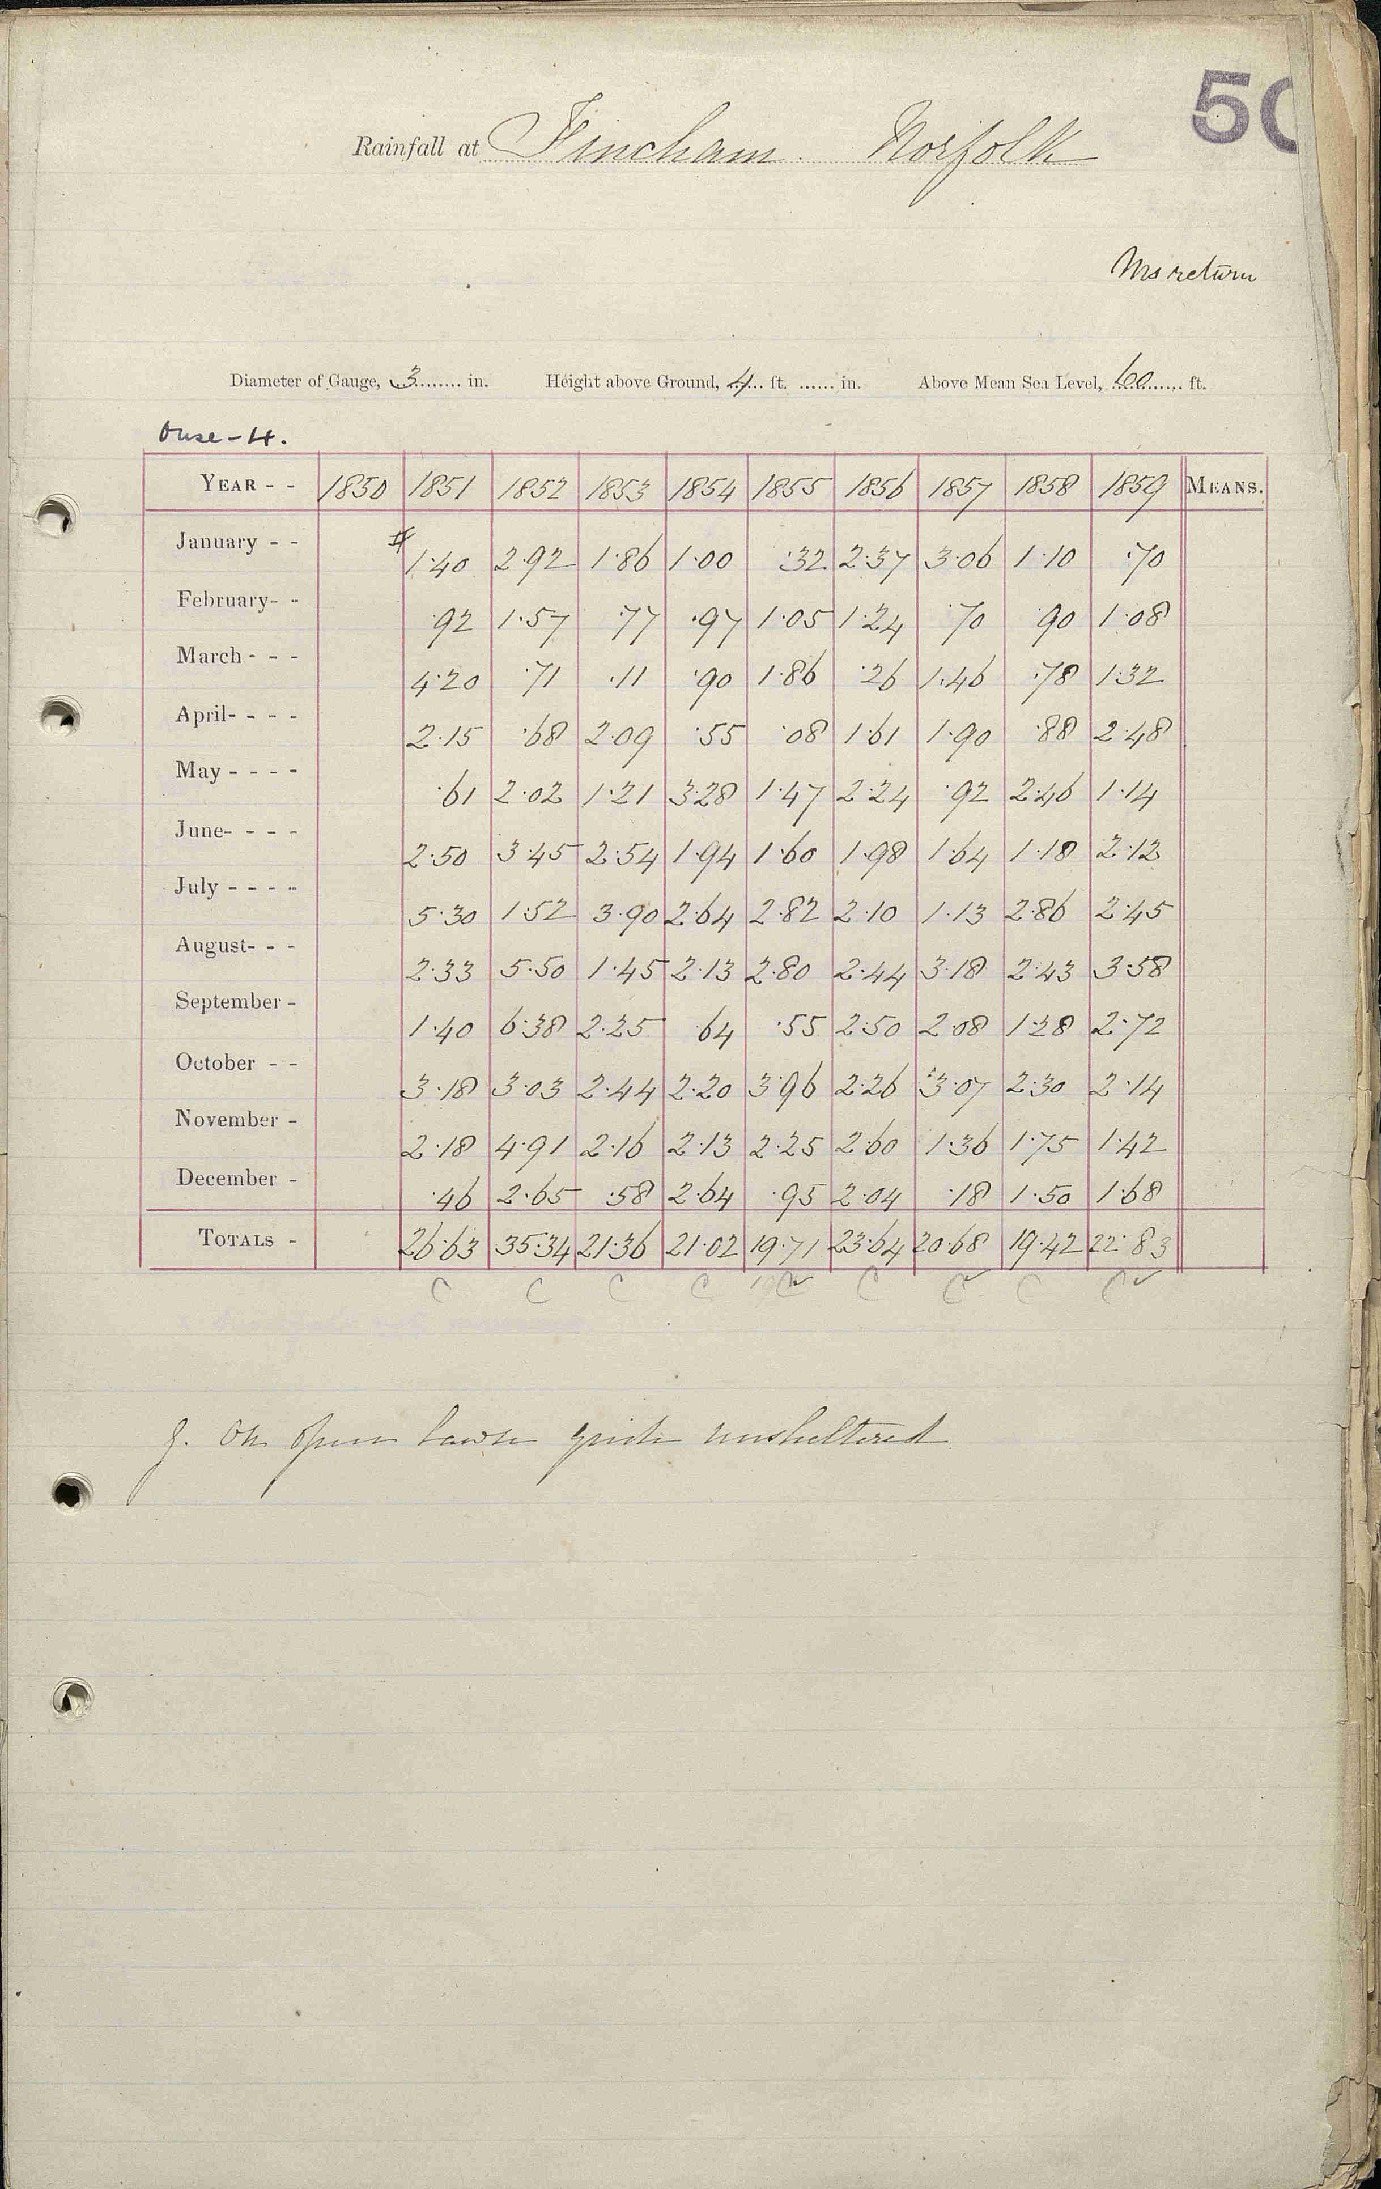 50
Rainfall at Fincham. Norfolk
Ms return
Diameter of Gauge, 3 in. Height above Ground, 4 ft. in. Above Mean Sea Level, 60 ft.
Ouse-H.
YEAR - - 1850 1851 1852 1853 1854 1855 1856 1857 1858 1859 MEANS.
January - - 1.40 2.92 1.86 1.00 .32 2.37 3.06 1.10 .70
February- - .92 1.57 .77 .97 1.05 1.24 .70 .90 1.08
March - - - 4.20 .71 .11 .90 1.86 .26 1.46 .78 1.32
April- - - - 2.15 .68 2.09 .55 .08 1.61 1.90 .88 2.48
May - - - - .61 2.02 1.21 3.28 1.47 2.24 .92 2.46 1.14
June- - - - 2.50 3.45 2.54 1.94 1.60 1.98 1.64 1.18 2.12
July - - - - 5.30 1.52 3.90 2.64 2.82 2.10 1.13 2.86 2.45
August- - - 2.33 5.50 1.45 2.13 2.80 2.44 3.18 2.43 3.58
September - 1.40 6.38 2.25 .64 .55 2.50 2.08 1.28 2.72
October - - 3.18 3.03 2.44 2.20 3.96 2.26 3.07 2.30 2.14
November - 2.18 4.91 2.16 2.13 2.25 2.60 1.36 1.75 1.42
December - .46 2.65 .58 2.64 .95 2.04 .18 1.50 1.68
TOTALS - 26.63 35.34 21.36 21.02 19.71 23.64 20.68 19.42 22.83
C C C C C C C C C
g. On open lawn quite unsheltered